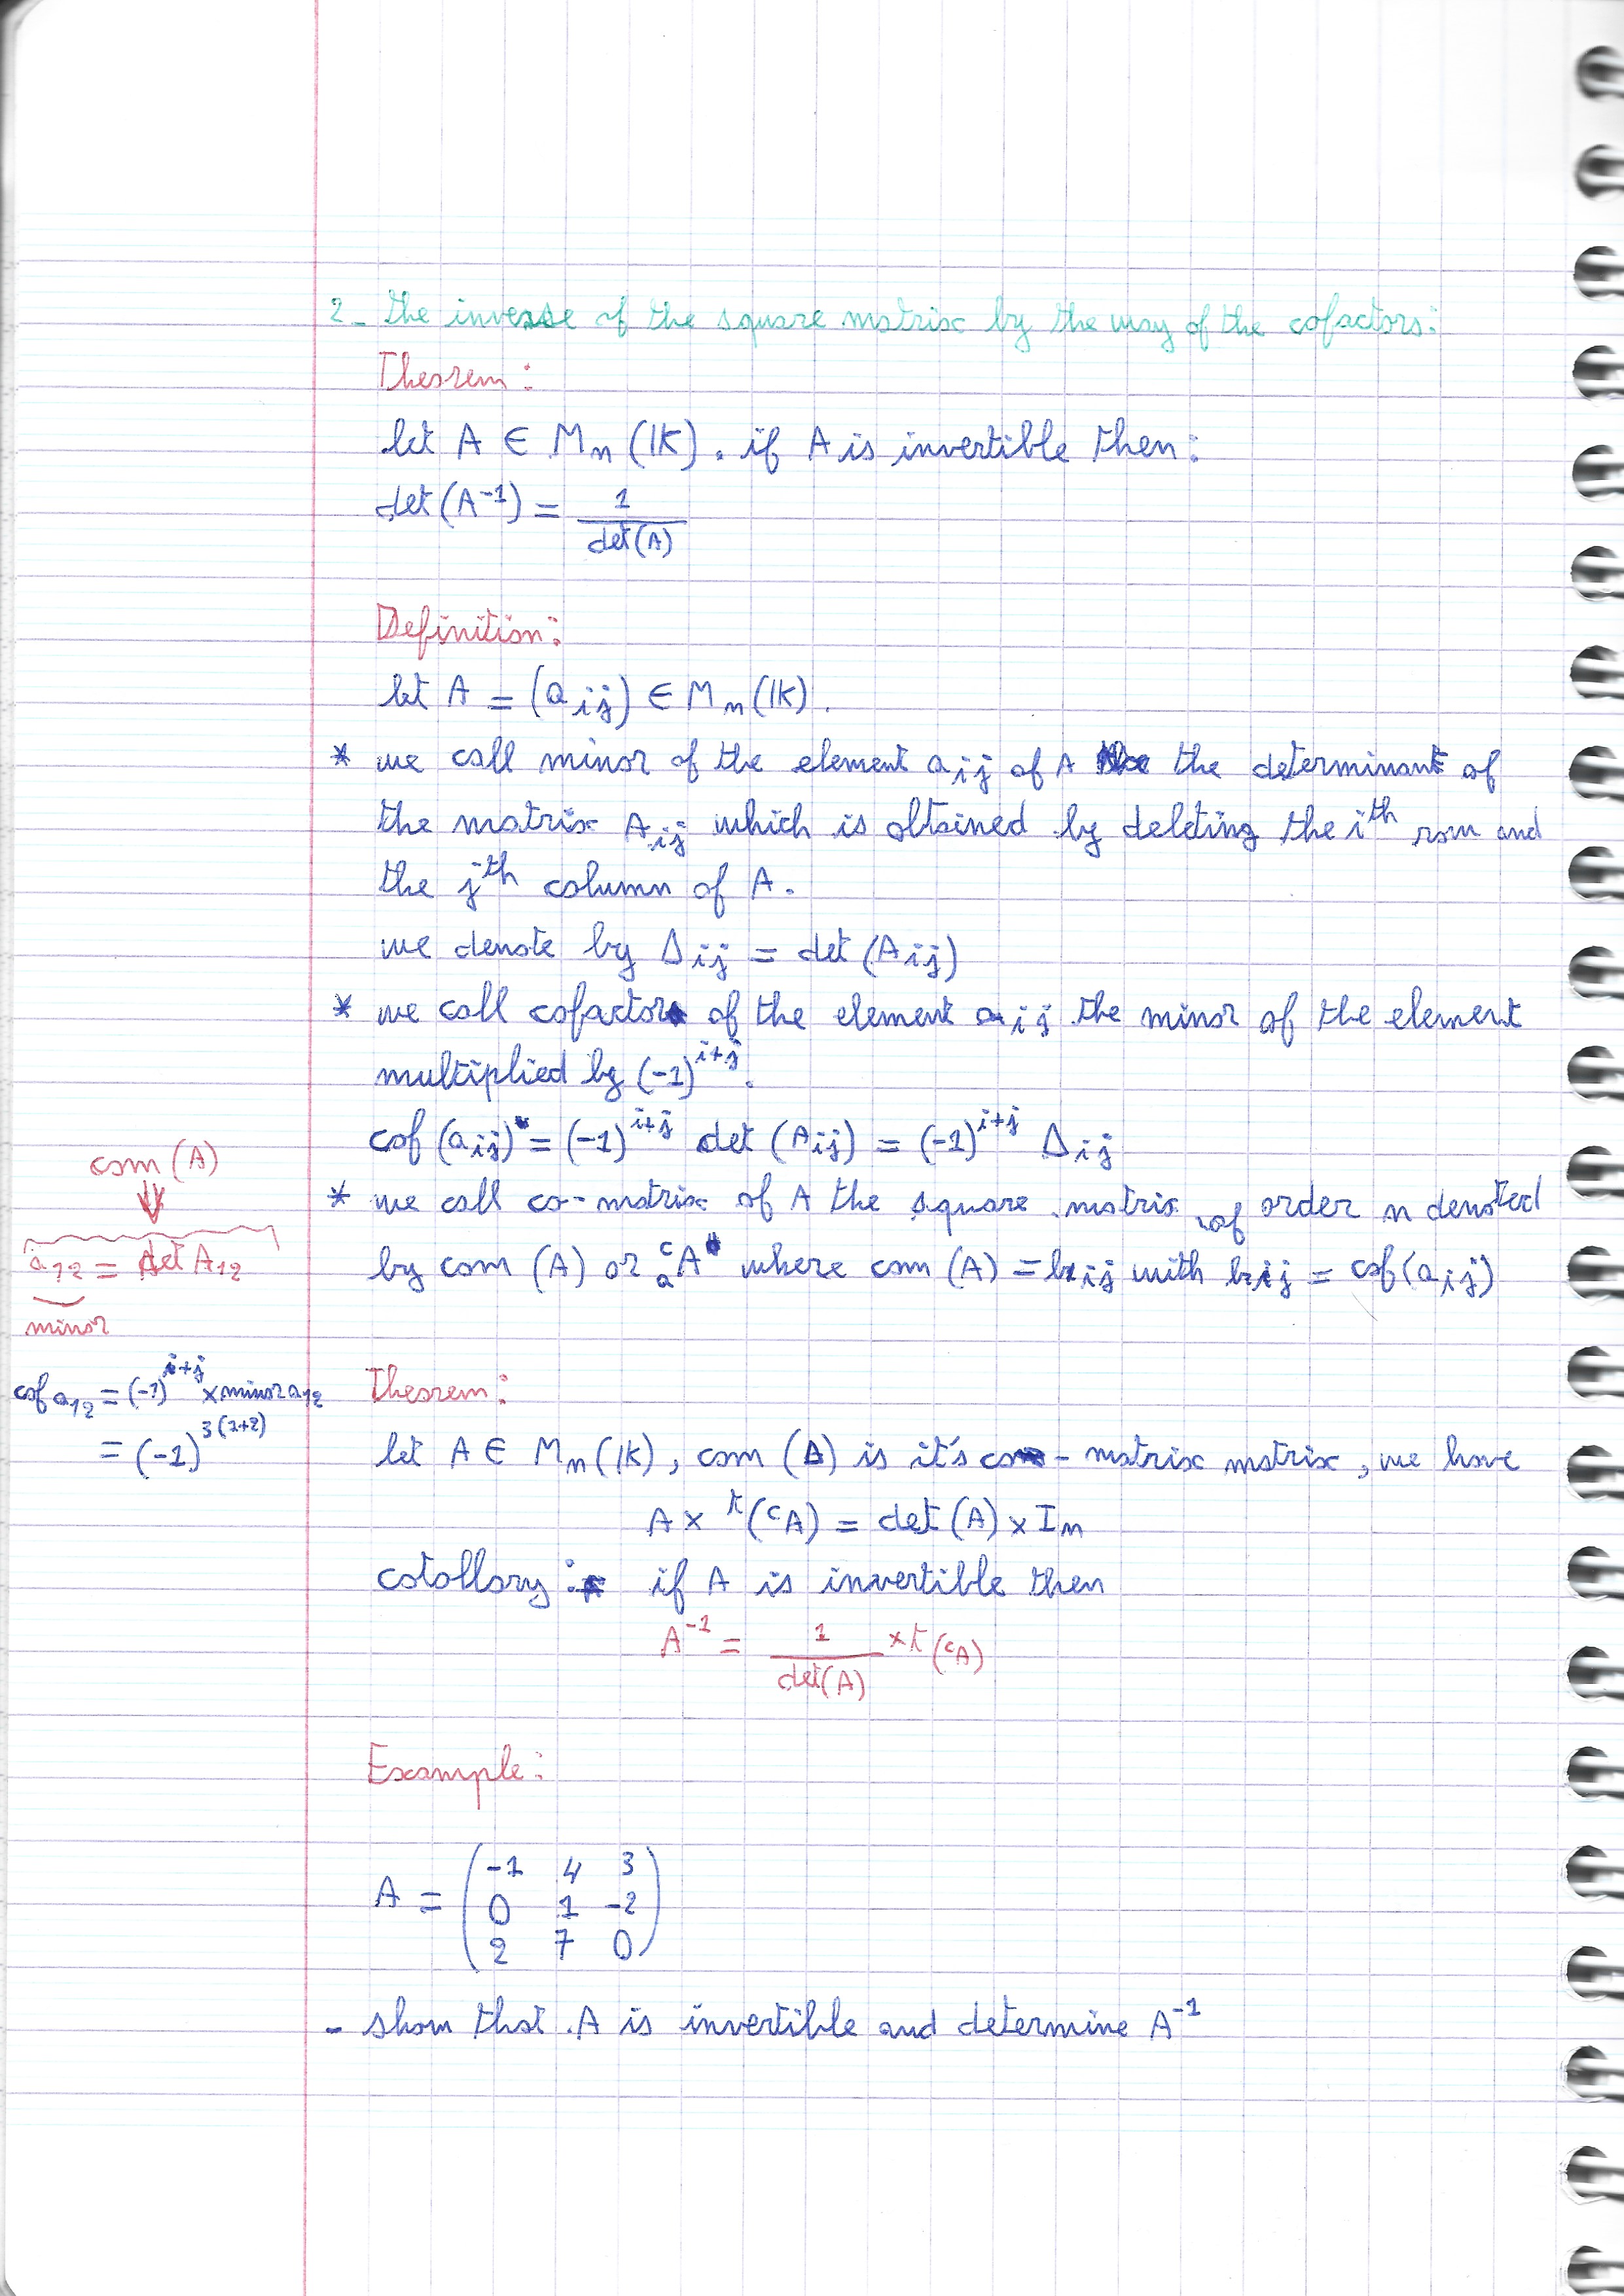 2- the inverse of the square matrix by the way of the cofactors:
Theorem:
let A ∈ Mn (IK). if A is invertible then:
det(A⁻¹) = 1 / det(A)
Definition:
let A = (a ij) ∈ Mn (IK).
* we call minor of the element a ij of A the determinant of
the matrix A ij which is obtained by deleting the i th row and
the j th column of A.
we denote by Δ ij = det (A ij)
* we call cofactor of the element a ij the minor of the element
multiplied by (-1)^i+j.
cof (a ij) = (-1)^i+j det (A ij) = (-1)^i+j Δ ij
* we call co-matrix of A the square matrix of order n denoted
by com (A) or ᶜA where com (A) = b ij with b ij = cof(a ij)
com (A)
⇓
a12 = det A12
minor
cof a12 = (-1)^i+j × minor a12
= (-1)^3(1+2)
Theorem:
let A ∈ Mn (IK), com (A) is it's co-matrix matrix, we have
A × ᵗ(ᶜA) = det (A) × In
cotollary: if A is invertible then
A⁻¹ = 1 / det(A) × t (ᶜA)
Example:
A = ( -1 4 3
0 1 -2
2 7 0 )
- show that A is invertible and determine A⁻¹